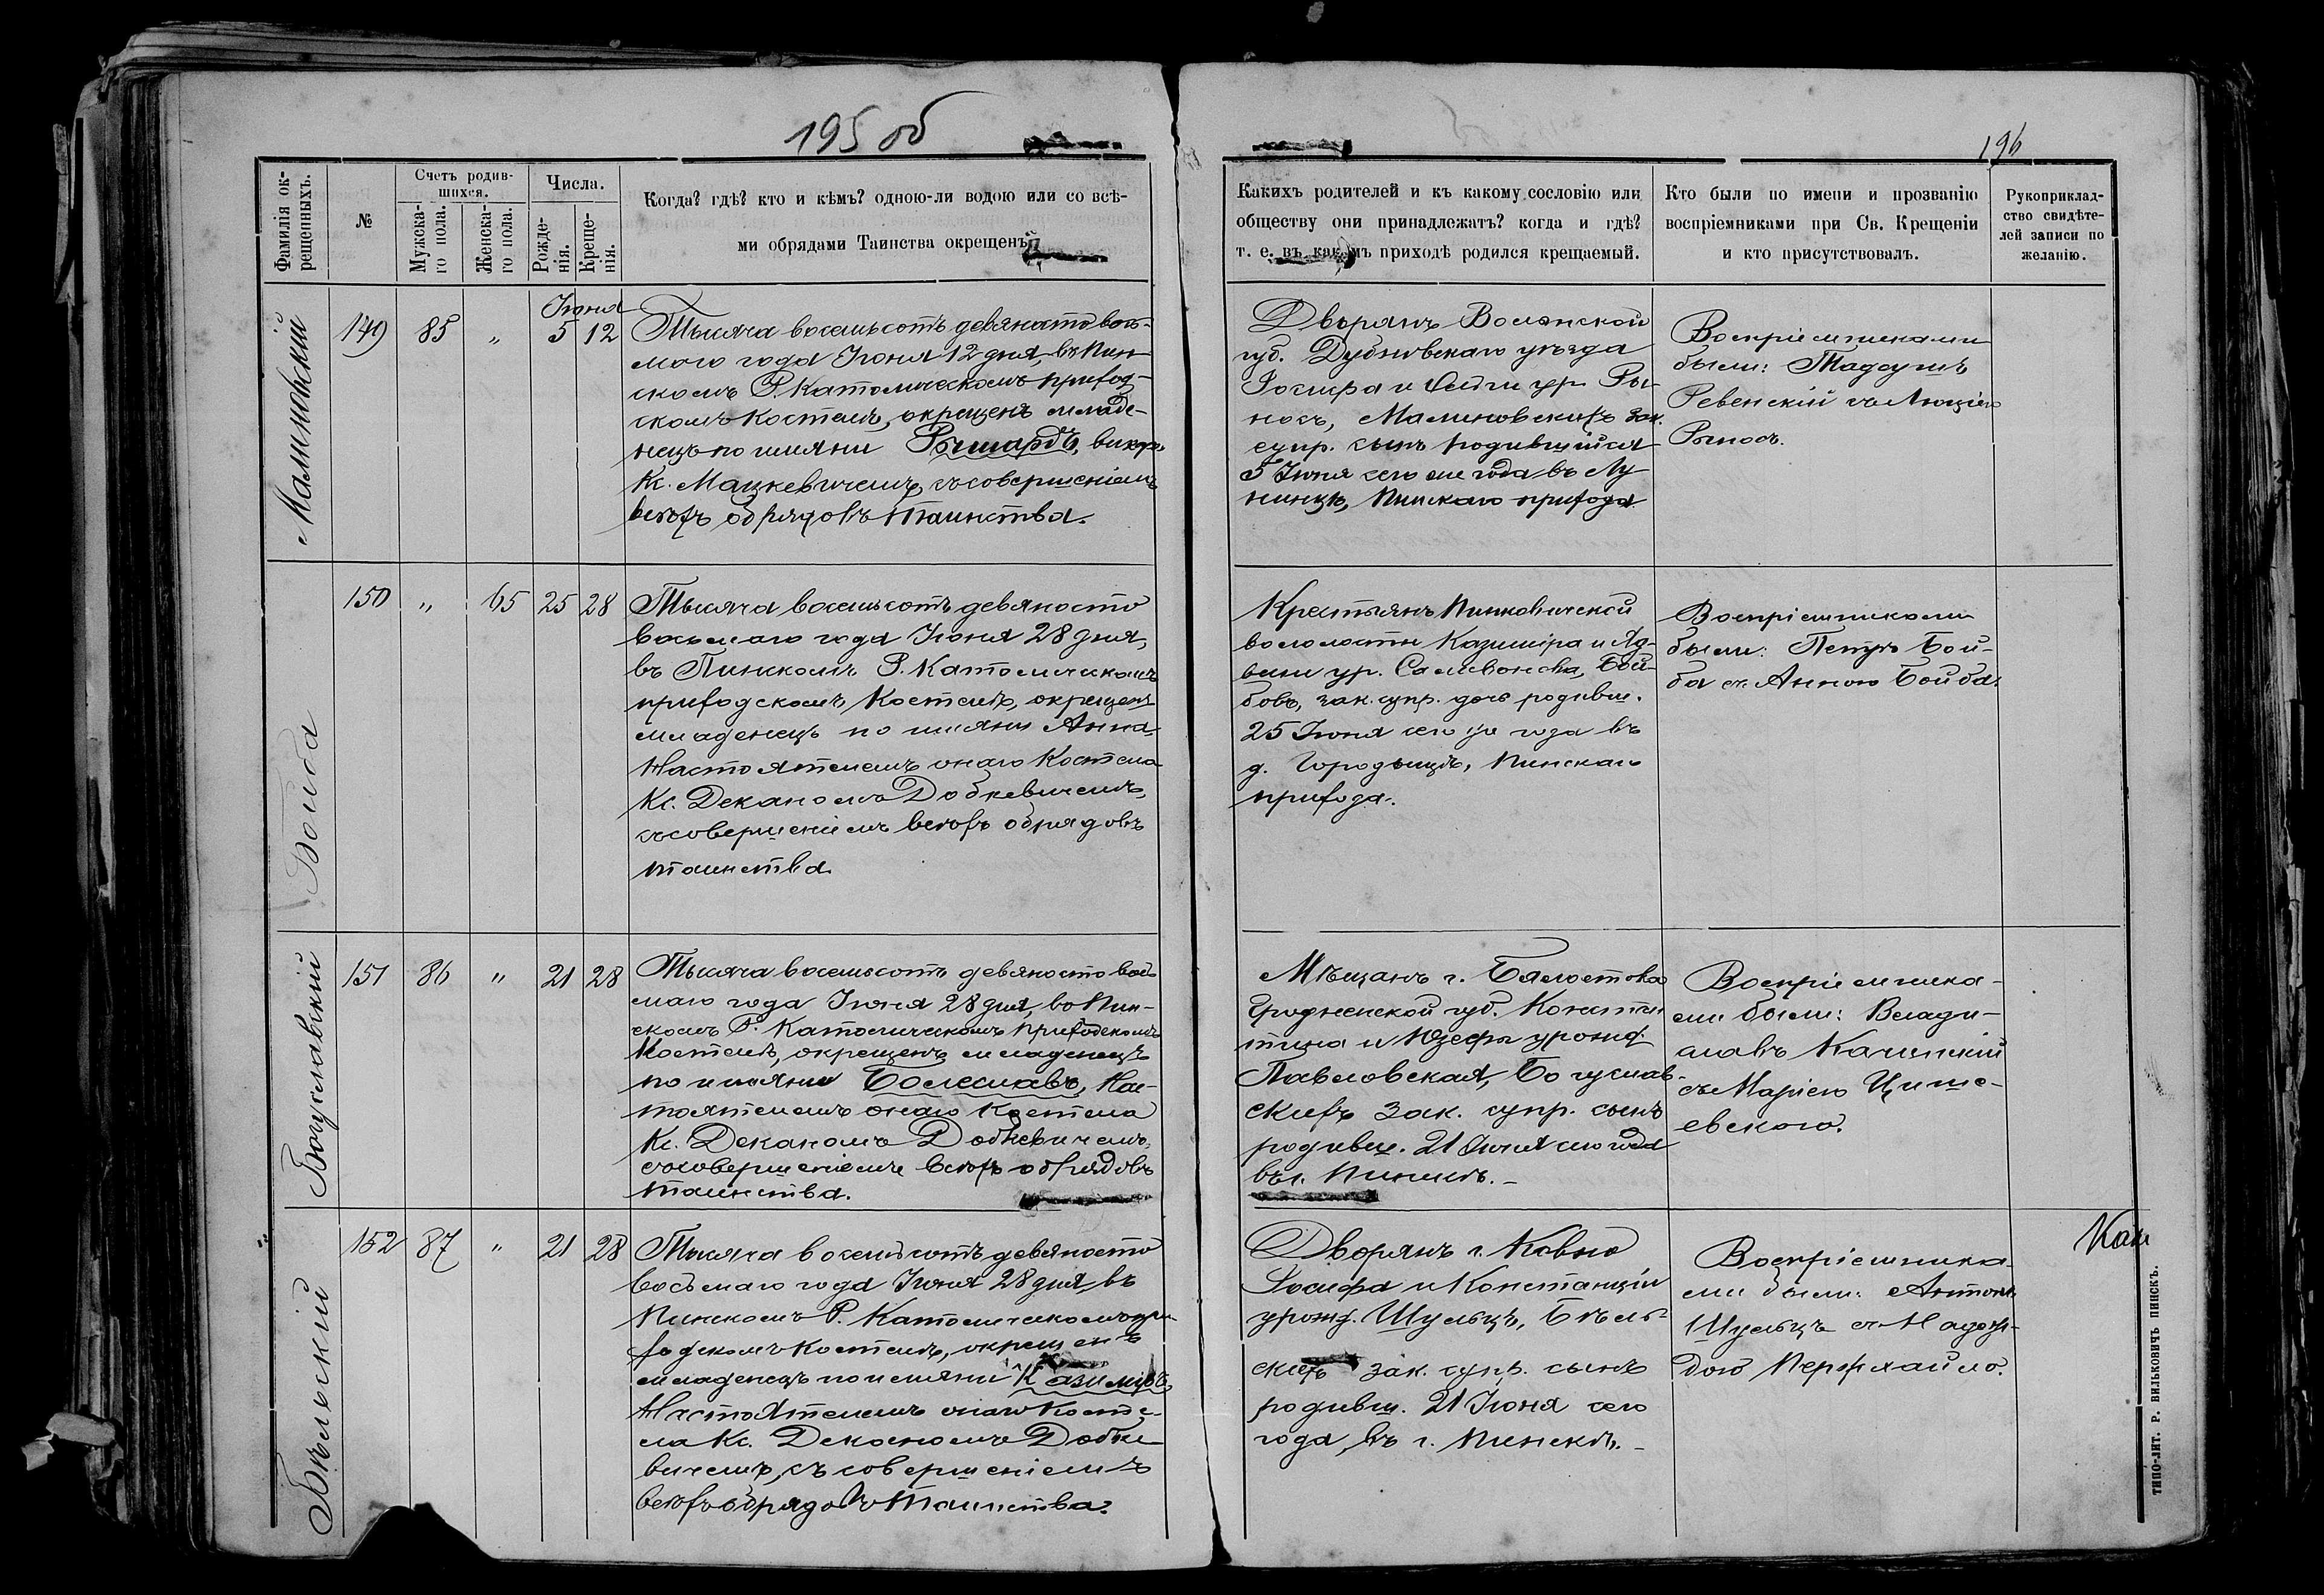 195 об
196
Фамилія ок-
рещенныхъ.
№
Счетъ родив-
шихся.
Мужска-
го пола.
Женска-
го пола.
Числа.
Рожде-
нія.
Креще-
нія.
Когда? гдѣ? кто и кѣмъ? одною-ли водою или со всѣ-
ми обрядами Таинства окрещенъ
Какихъ родителей и къ какому сословію или
обществу они принадлежатъ? когда и гдѣ?
т. е. въ какомъ приходѣ родился крещаемый.
Кто были по имени и прозванію
воспріемниками при Св. Крещеніи
и кто присутствовалъ.
Рукоприклад-
ство свидѣте-
лей записи по
желанію.
Малиновскій
149 85 „ Іюня 5 12
Тысяча восемьсотъ девяносто вось-
маго года Іюня 12 дня, въ Пин-
скомъ Р. Католическомъ приход-
скомъ Костелѣ, окрещенъ младе-
нецъ по имяни Рышардъ, викар.
Кс. Мацкевичемъ, съ совершеніемъ
всѣхъ обрядовъ таинства.
Дворянъ Волынской
губ. Дубновскаго уѣзда
Іосифа и Ольги ур. Ры-
носъ, Малиновскихъ зак.
супр. сынъ родившійся
5 Іюня сего же года въ Лу
нинцѣ, Пинскаго прихода
Воспріемниками
были: Тадеушъ
Ревенскій съ Люціею
Рыносъ.
Бойба
150 „ 65 25 28
Тысяча восемьсотъ девяносто
восьмаго года Іюня 28 дня,
въ Пинскомъ Р. Католическомъ
приходскомъ Костелѣ, окрещенъ
младенецъ по имяни Анна
Настоятелемъ онаго Костела
Кс. Деканомъ Добкевичемъ,
съ совершеніемъ всѣхъ обрядовъ
таинства.
Крестьянъ Пинковичской
вололости Казимира и Яд-
виги ур. Саливонска, Бой-
бовъ, зак. супр. дочь родивш.
25 Іюня сего же года въ
д. Городыщѣ, Пинскаго
прихода.
Воспріемниками
были: Петръ Бой-
ба съ Анною Бойба.
Богуславскій
151 86 „ 21 28
Тысяча восемьсотъ девяносто вось
маго года Іюня 28 дня, въ Пин-
скомъ Р. Католическомъ приходскомъ
Костелѣ, окрещенъ младенецъ
по имяни Болеславъ, Нас-
тоятелемъ онаго Костела
Кс. Деканомъ Добкевичемъ,
съ совершеніемъ всѣхъ обрядовъ
таинства.
Мѣщанъ г. Бялостока
Гродненской губ. Констан
тина и Юзефы урожд.
Павловская, Богуслав-
скихъ зак. супр. сынъ
родивш. 21 Іюня сего года
въ г. Пинскѣ. -
Воспріемника-
ми были: Влади-
славъ Калинскій
съ Маріею Цише-
евскою.
Бѣльскій
152 87 „ 21 28
Тысяча восемьсотъ девяносто
восьмаго года Іюня 28 дня, въ
Пинскомъ Р. Католическомъ при-
ходскомъ Костелѣ, окрещенъ
младенецъ по имяни Казиміръ,
Настоятелемъ онаго Косте-
ла Кс. Деканомъ Добке
вичемъ, съ совершеніемъ
всѣхъ обрядовъ таинства.
Дворянъ г. Ковно
Іосифа и Констанціи
урожд. Шульцъ, Бѣль-
скихъ зак. супр. сынъ
родивш. 21 Іюня сего
года, въ г. Пинскѣ. -
Воспріемника-
ми были: Антонъ
Шульцъ съ Надеж-
дою
Кан
ТИПО-ЛИТ. Р. ВИЛЬКОВИЧЪ ПИНСКЪ.